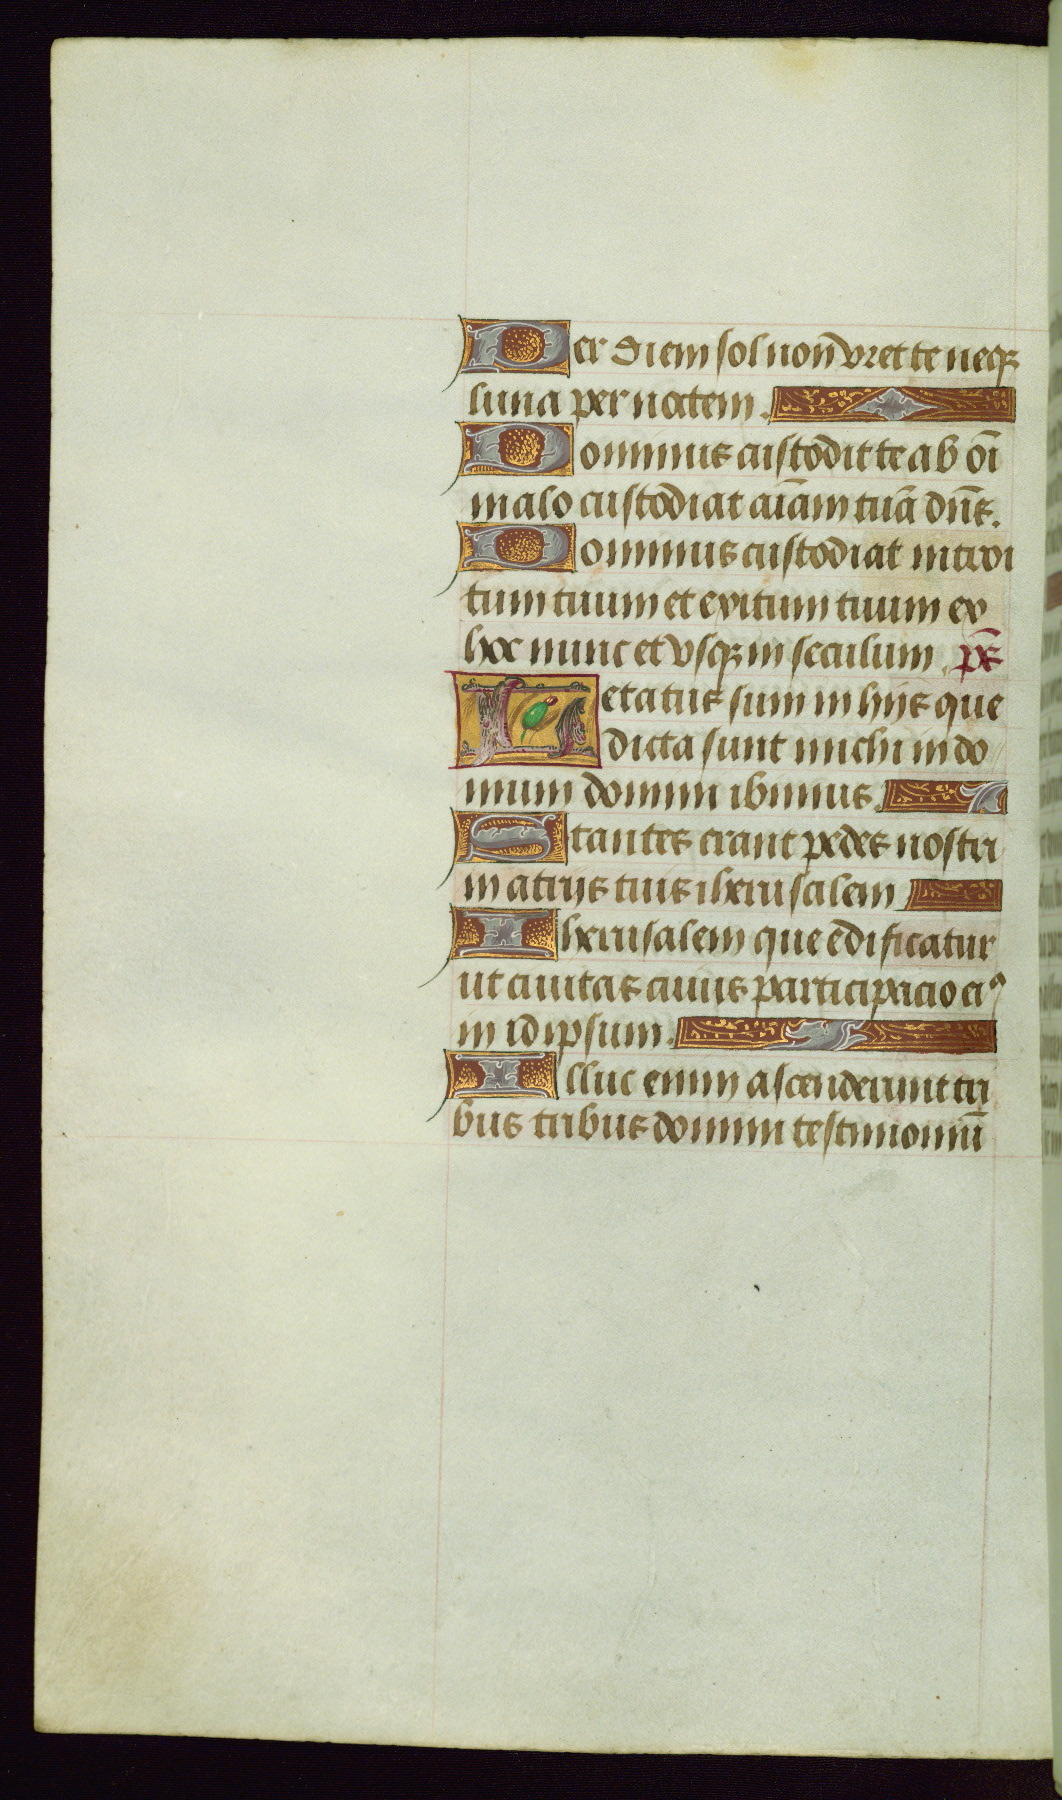 Per diem sol non vret te neqꝫ
luna per noctem.
Dominus custodit te ab oī
malo custodiat aīam tuā dn̄s.
Dominus custodiat introi
tum tuum et exitum tuum ex
hoc nunc et vsqꝫ in seculum. ps̄
Letatus sum in hijs que
dicta sunt michi in do
mum domini ibimus.
Stantes erant pedes nostri
in atrijs tuis iherusalem
Iherusalem que edificatur
ut ciuitas cuius participacio eiꝰ
in idipsum.
Illuc enim ascenderunt tri
bus tribus domini testimoniū